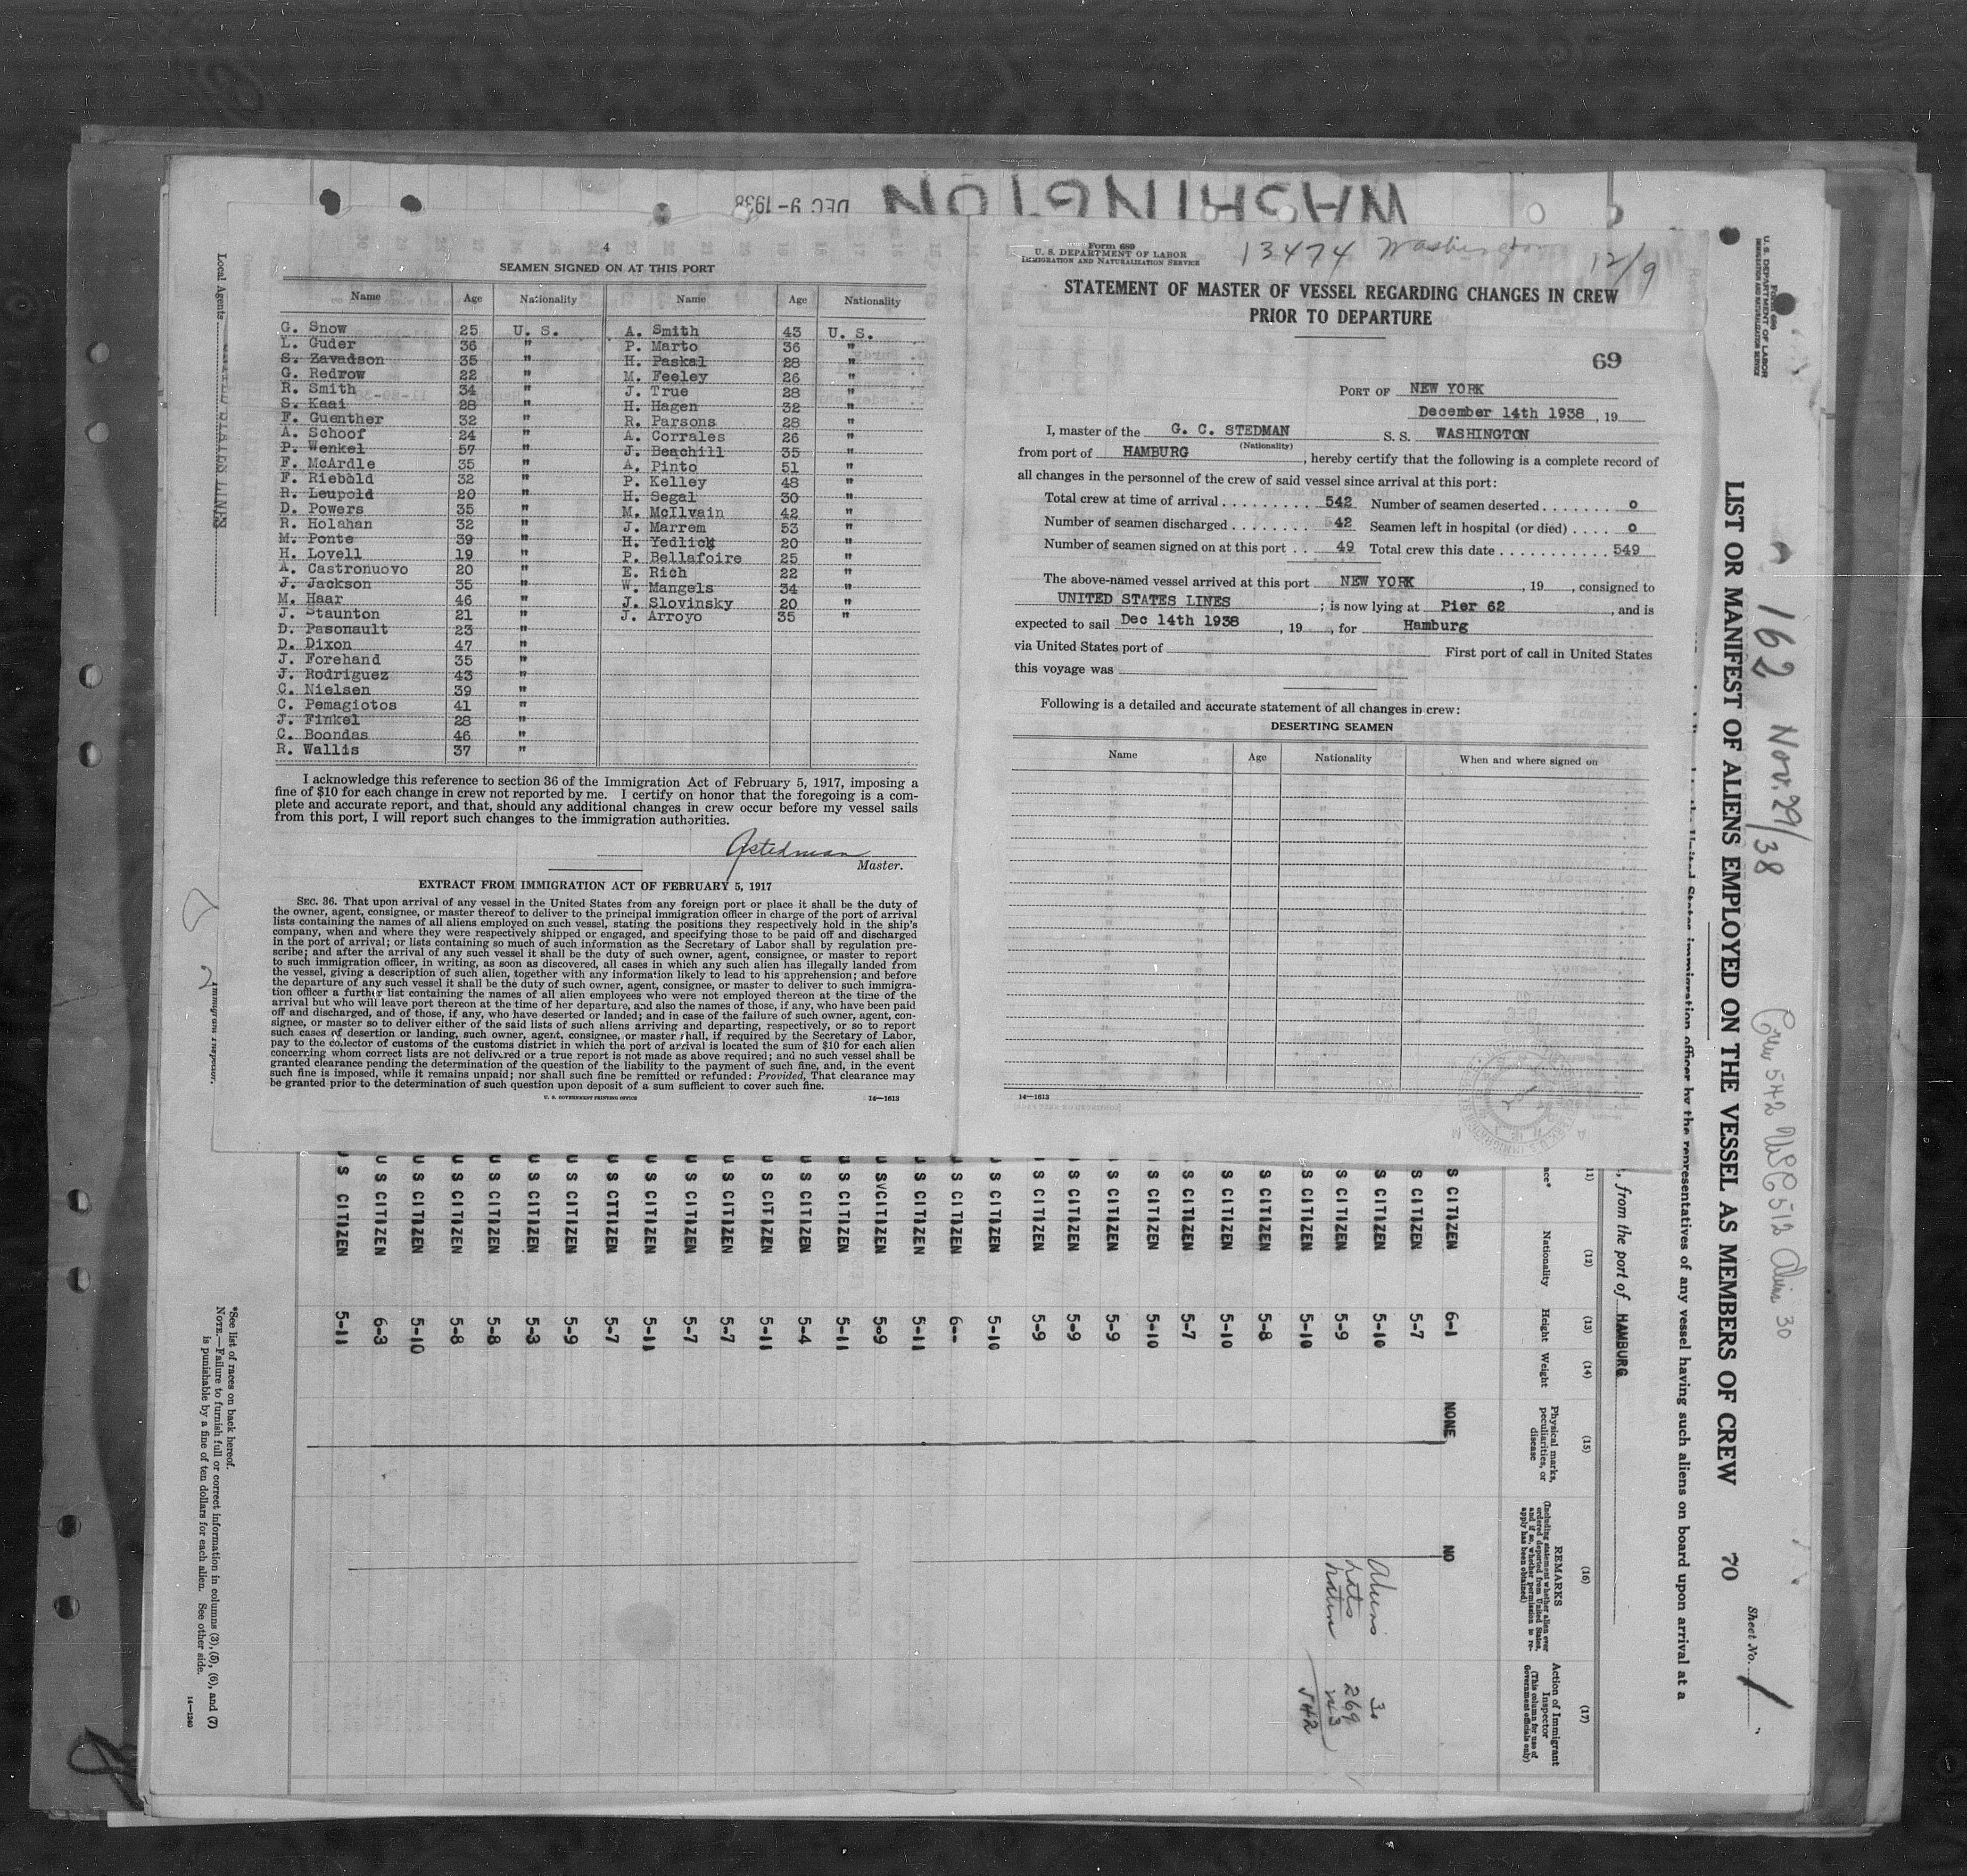 WASHINGTON
DEC 9-1938
4
SEAMEN SIGNED ON AT THIS PORT
Name Age Nationality Name Age Nationality
G. Snow 25 U. S. A. Smith 43 U. S.
L. Guder 36 " P. Marto 36 "
S. Zavadson 35 " H. Paskal 28 "
G. Redrow 22 " M. Feeley 26 "
R. Smith 34 " J. True 28 "
S. Kaai 28 " H. Hagen 32 "
F. Guenther 32 " R. Parsons 28 "
A. Schoof 24 " A. Corrales 26 "
P. Wenkel 57 " J. Beachill 35 "
F. McArdle 35 " A. Pinto 51 "
F. Riebold 32 " P. Kelley 48 "
R. Leupold 20 " H. Segal 30 "
D. Powers 35 " M. McIlvain 42 "
R. Holahan 32 " J. Marrem 53 "
M. Ponte 39 " H. Yedlick 20 "
H. Lovell 19 " P. Bellafoire 25 "
A. Castronuovo 20 " E. Rich 22 "
J. Jackson 35 " W. Mangels 34 "
M. Haar 46 " J. Slovinsky 20 "
J. Staunton 21 " J. Arroyo 35 "
D. Pasonault 23 "
D. Dixon 47 "
J. Forehand 35 "
J. Rodriguez 43 "
C. Nielsen 39 "
C. Pemagiotos 41 "
J. Finkel 28 "
C. Boondas 46 "
R. Wallis 37 "
I acknowledge this reference to section 36 of the Immigration Act of February 5, 1917, imposing a
fine of $10 for each change in crew not reported by me. I certify on honor that the foregoing is a com-
plete and accurate report, and that, should any additional changes in crew occur before my vessel sails
from this port, I will report such changes to the immigration authorities.
GStedman
Master.
EXTRACT FROM IMMIGRATION ACT OF FEBRUARY 5, 1917
SEC. 36. That upon arrival of any vessel in the United States from any foreign port or place it shall be the duty of
the owner, agent, consignee, or master thereof to deliver to the principal immigration officer in charge of the port of arrival
lists containing the names of all aliens employed on such vessel, stating the positions they respectively hold in the ship's
company, when and where they were respectively shipped or engaged, and specifying those to be paid off and discharged
in the port of arrival; or lists containing so much of such information as the Secretary of Labor shall by regulation pre-
scribe; and after the arrival of any such vessel it shall be the duty of such owner, agent, consignee, or master to report
to such immigration officer, in writing, as soon as discovered, all cases in which any such alien has illegally landed from
the vessel, giving a description of such alien, together with any information likely to lead to his apprehension; and before
the departure of any such vessel it shall be the duty of such owner, agent, consignee, or master to deliver to such immigra-
tion officer a further list containing the names of all alien employees who were not employed thereon at the time of the
arrival but who will leave port thereon at the time of her departure, and also the names of those, if any, who have been paid
off and discharged, and of those, if any, who have deserted or landed; and in case of the failure of such owner, agent, con-
signee, or master so to deliver either of the said lists of such aliens arriving and departing, respectively, or so to report
such cases of desertion or landing, such owner, agent, consignee, or master shall, if required by the Secretary of Labor,
pay to the collector of customs of the customs district in which the port of arrival is located the sum of $10 for each alien
concerning whom correct lists are not delivered or a true report is not made as above required; and no such vessel shall be
granted clearance pending the determination of the question of the liability to the payment of such fine, and, in the event
such fine is imposed, while it remains unpaid; nor shall such fine be remitted or refunded: Provided, That clearance may
be granted prior to the determination of such question upon deposit of a sum sufficient to cover such fine.
U. S. GOVERNMENT PRINTING OFFICE 14—1613
Form 689
U. S. DEPARTMENT OF LABOR
IMMIGRATION AND NATURALIZATION SERVICE
13474 Washington 12/9
STATEMENT OF MASTER OF VESSEL REGARDING CHANGES IN CREW
PRIOR TO DEPARTURE
69
PORT OF NEW YORK
December 14th 1938, 19
I, master of the G. C. STEDMAN S. S. WASHINGTON
(Nationality)
from port of HAMBURG, hereby certify that the following is a complete record of
all changes in the personnel of the crew of said vessel since arrival at this port:
Total crew at time of arrival 542 Number of seamen deserted 0
Number of seamen discharged 42 Seamen left in hospital (or died) 0
Number of seamen signed on at this port 49 Total crew this date 549
The above-named vessel arrived at this port NEW YORK, 19, consigned to
UNITED STATES LINES; is now lying at Pier 62, and is
expected to sail Dec 14th 1938, 19, for Hamburg
via United States port of First port of call in United States
this voyage was
Following is a detailed and accurate statement of all changes in crew:
DESERTING SEAMEN
Name Age Nationality When and where signed on
14—1613
Local Agents UNITED STATES LINES
Immigrant Inspector.
U. S. DEPARTMENT OF LABOR
IMMIGRATION AND NATURALIZATION SERVICE
Form 689
162 Nov. 29/38
Crew 542 USC 512 Aliens 30
LIST OR MANIFEST OF ALIENS EMPLOYED ON THE VESSEL AS MEMBERS OF CREW 70
Sheet No. 1
United States immigration officer by the representatives of any vessel having such aliens on board upon arrival at a
, from the port of HAMBURG
(12) (13) (14) (15) (16) (17)
Nationality Height Weight
Physical marks, peculiarities, or disease
REMARKS
(Including statement whether alien ever ordered deported from United States, and if so, whether permission to re-apply has been obtained)
Action of Immigrant Inspector
(This column for use of Government officials only)
S CITIZEN 6-1 NONE NO
S CITIZEN 5-7
S CITIZEN 5-10
S CITIZEN 5-9
S CITIZEN 5-10
S CITIZEN 5-8
S CITIZEN 5-10
S CITIZEN 5-7
S CITIZEN 5-10
S CITIZEN 5-9
S CITIZEN 5-9
S CITIZEN 5-9
U S CITIZEN 5-10
U S CITIZEN 6--
U S CITIZEN 5-11
U S CITIZEN 5-9
U S CITIZEN 5-11
U S CITIZEN 5-4
U S CITIZEN 5-11
U S CITIZEN 5-7
U S CITIZEN 5-7
U S CITIZEN 5-11
U S CTTIZEN 5-7
U S CITIZEN 5-9
U S CITIZEN 5-3
U S CITIZEN 5-8
U S CITIZEN 5-8
U S CITIZEN 5-10
U S CITIZEN 6-3
U S CITIZEN 5-11
Aliens 30
nats 269
natus 243
542
*See list of races on back hereof.
NOTE.—Failure to furnish full or correct information in columns (3), (5), (6), and (7)
is punishable by a fine of ten dollars for each alien. See other side.
14—1240